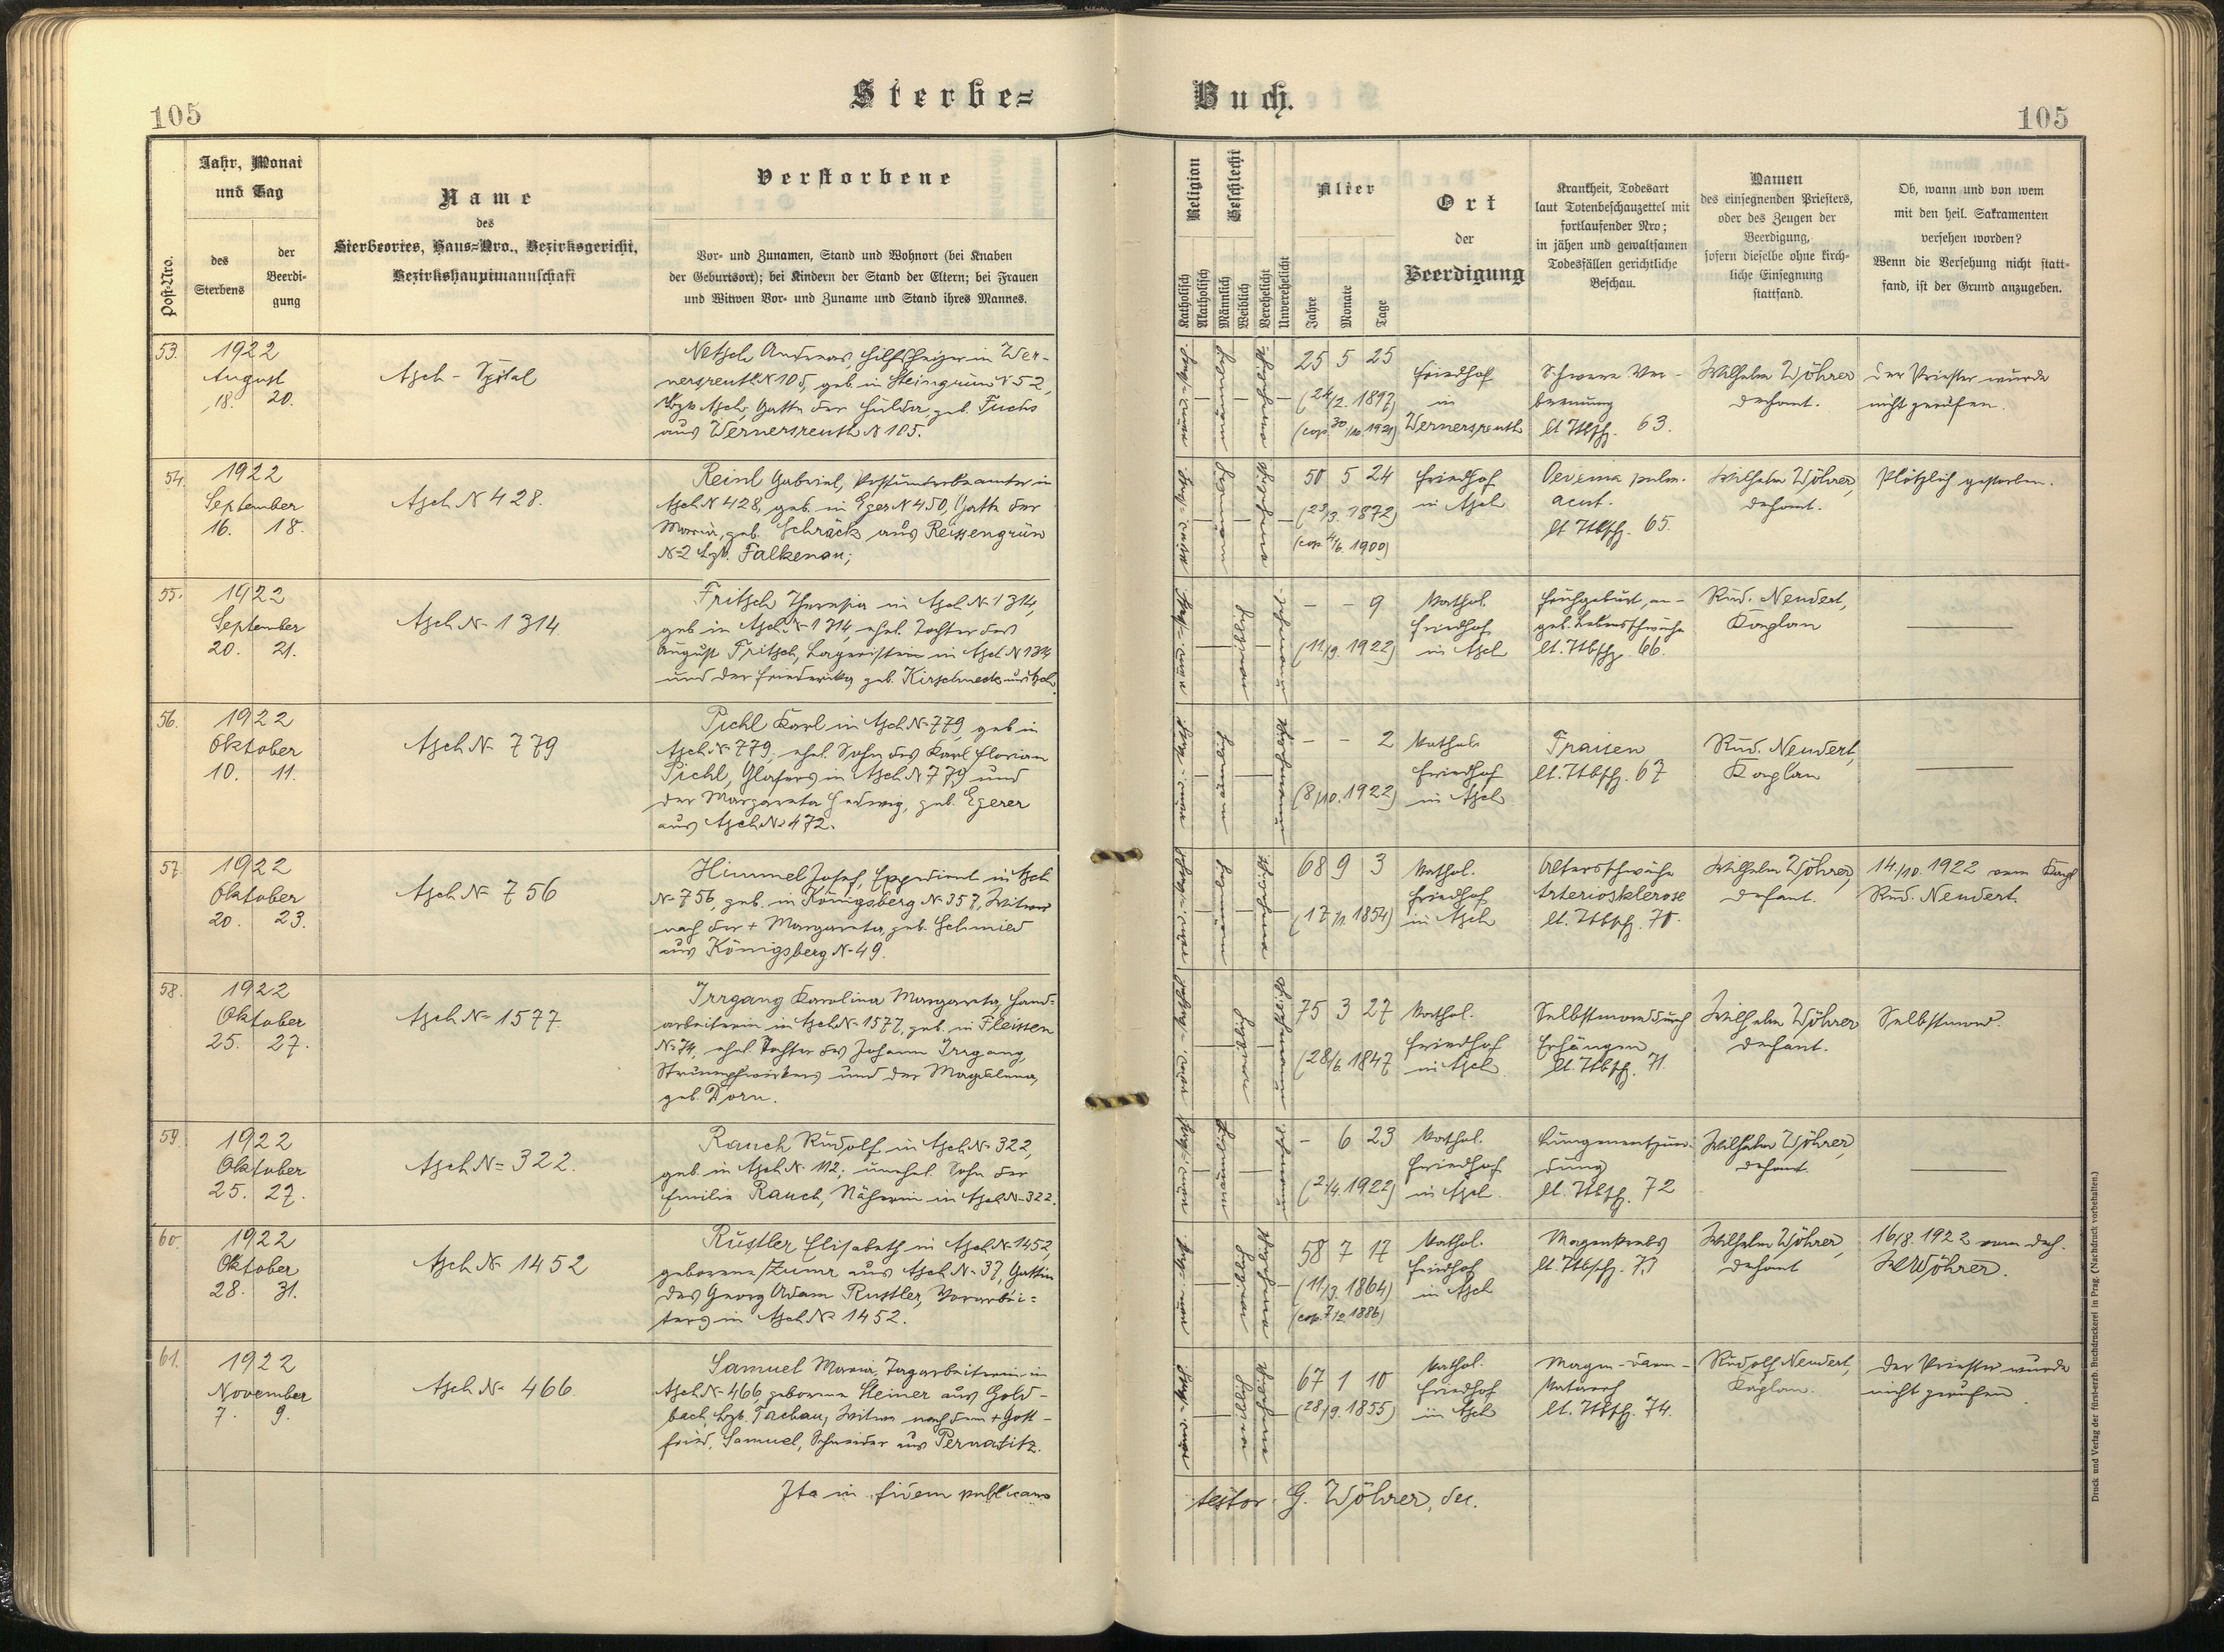 105
Sterbe=
Buch.
105
Post-Nro.
Jahr, Monat
und Tag
des
Sterbens
der
Beerdi-
gung
Name
des
Sterbeortes, Haus=Nro., Bezirksgericht,
Bezirkshauptmannschaft
Verstorbene
Vor- und Zunamen, Stand und Wohnort (bei Knaben
der Geburtsort); bei Kindern der Stand der Eltern; bei Frauen
und Witwen Vor- und Zuname und Stand ihres Mannes.
Religion
Katholisch
Akatholisch
Geschlecht
Männlich
Weiblich
Verehelicht
Unverehelicht
Alter
Jahre
Monate
Tage
Ort
der
Beerdigung
Krankheit, Todesart
laut Totenbeschauzettel mit
fortlaufender Nro;
in jähen und gewaltsamen
Todesfällen gerichtliche
Beschau.
Namen
des einsegnenden Priesters,
oder des Zeugen der
Beerdigung,
sofern dieselbe ohne kirch-
liche Einsegnung
stattfand.
Ob, wann und von wem
mit den heil. Sakramenten
versehen worden?
Wenn die Versehung nicht statt-
fand, ist der Grund anzugeben.
53.
1922
August
18. 20.
Asch - Spital
Netsch Andreas, Hilfsheizer in Wer-
nersreuth N 105, geb. in Steingrün N 52,
Bzk. Asch, Gatte der Hulda, geb. Fuchs
aus Wernersreuth N 105.
25 5 25
(24/2. 1897)
(cop. 30/10. 1921)
Friedhof
in
Wernersreuth
Schwere Ver-
brennung
lt. Ttbsch. 63.
Wilhelm Wöhrer
Dechant.
Der Priester wurde
nicht gerufen.
54.
1922
September
16. 18.
Asch N 428.
Reinl Gabriel, Postunterbeamter in
Asch N 428, geb. in Eger N 450, Gatte der
Maria, geb. Schräck aus Reissengrün
N 2 Bzk. Falkenau;
50 5 24
(23/3. 1872)
(cop. 4/6. 1900)
Friedhof
in Asch
Oedema pulm.
acut.
lt. Ttbsch. 65.
Wilhelm Wöhrer,
Dechant.
Plötzlich gestorben.
55.
1922
September
20. 21.
Asch N 1314
Fritsch Theresia in Asch N 1314,
geb. in Asch N 1314, ehel. Tochter des
August Fritsch, Lageristen in Asch N 1314
und der Friederika, geb. Kirschneck aus Asch.
- - 9
(11/9. 1922)
Kathol.
Friedhof
in Asch
Frühgeburt, an-
geb. Lebensschwäche
lt. Ttbsch. 66.
Rud. Neudert,
Kaplan
56.
1922
Oktober
10. 11.
Asch N 779
Pichl Karl in Asch N 779 geb. in
Asch N 779, ehel. Sohn des Karl Florian
Pichl, Glasers in Asch N 779 und
der Margareta Hedwig, geb. Egerer
aus Asch N 472.
- - 2
(8/10. 1922)
Kathol.
Friedhof
in Asch
Fraisen
lt. Ttbsch. 67
Rud. Neudert,
Kaplan
57.
1922
Oktober
20. 23.
Asch N 756
Himmel Josef, Expedient in Asch
N 756, geb. in Königsberg N 357, Witwer
nach der + Margareta, geb. Schmied
aus Königsberg N 49.
68 9 3
(17/1. 1854)
Kathol.
Friedhof
in Asch
Altersschwäche
Arteriosklerose
lt. Ttbsch. 70.
Wilhelm Wöhrer,
Dechant.
14./10. 1922 vom Kapl.
Rud. Neudert.
58.
1922
Oktober
25. 27.
Asch N 1577
Irrgang Karolina Margareta, Hand-
arbeiterin in Asch N 1577, geb. in Fleissen
N 74, ehel. Tochter des Johann Irrgang,
Strumpfwirkers und der Magdalena,
geb. Dorn.
75 3 27
(28/6. 1847
Kathol.
Friedhof
in Asch
Selbstmord durch
Erhängen
lt. Ttbsch. 71.
Wilhelm Wöhrer
Dechant.
Selbstmord.
59.
1922
Oktober
25. 27.
Asch N 322.
Rauch Rudolf in Asch N 322,
geb. in Asch N 112, unehel. Sohn der
Emilie Rauch, Näherin in Asch N 322.
- 6 23
(2/4. 1922)
Kathol.
Friedhof
in Asch.
Lungenentzün-
dung
lt. Ttbsch. 72
Wilhelm Wöhrer,
Dechant.
60.
1922
Oktober
28. 31.
Asch N 1452
Rustler Elisabeth in Asch N 1452,
geborene aus Asch N 37, Gattin
des Georg Adam Rustler, Vorarbei-
ters in Asch N 1452.
58 7 17
(11/3. 1864)
(cop. 7/2. 1886)
Kathol.
Friedhof
in Asch
Magenkrebs
lt. Ttbsch. 73
Wilhelm Wöhrer,
Dechant
16/8. 1922 vom Dech.
W Wöhrer.
61.
1922
November
7. 9.
Asch N 466.
Samuel Maria, Tagarbeiterin in
Asch N 466, geborene Steiner aus Gold-
bach, Bzk. Tachau, Witwe nach dem + Gott-
fried Samuel, Schneider aus Pernatitz.
67 1 10
(28/9. 1855)
Kathol.
Friedhof
in Asch
Magen-Darm-
Katarrh
lt. Ttbsch. 74.
Rudolf Neudert,
Kaplan.
Der Priester wurde
nicht gerufen
Ita in fidem publicam
testor. G. Wöhrer, dec.
Druck und Verlag der fürst-erzb. Buchdruckerei in Prag. (Nachdruck vorbehalten.)